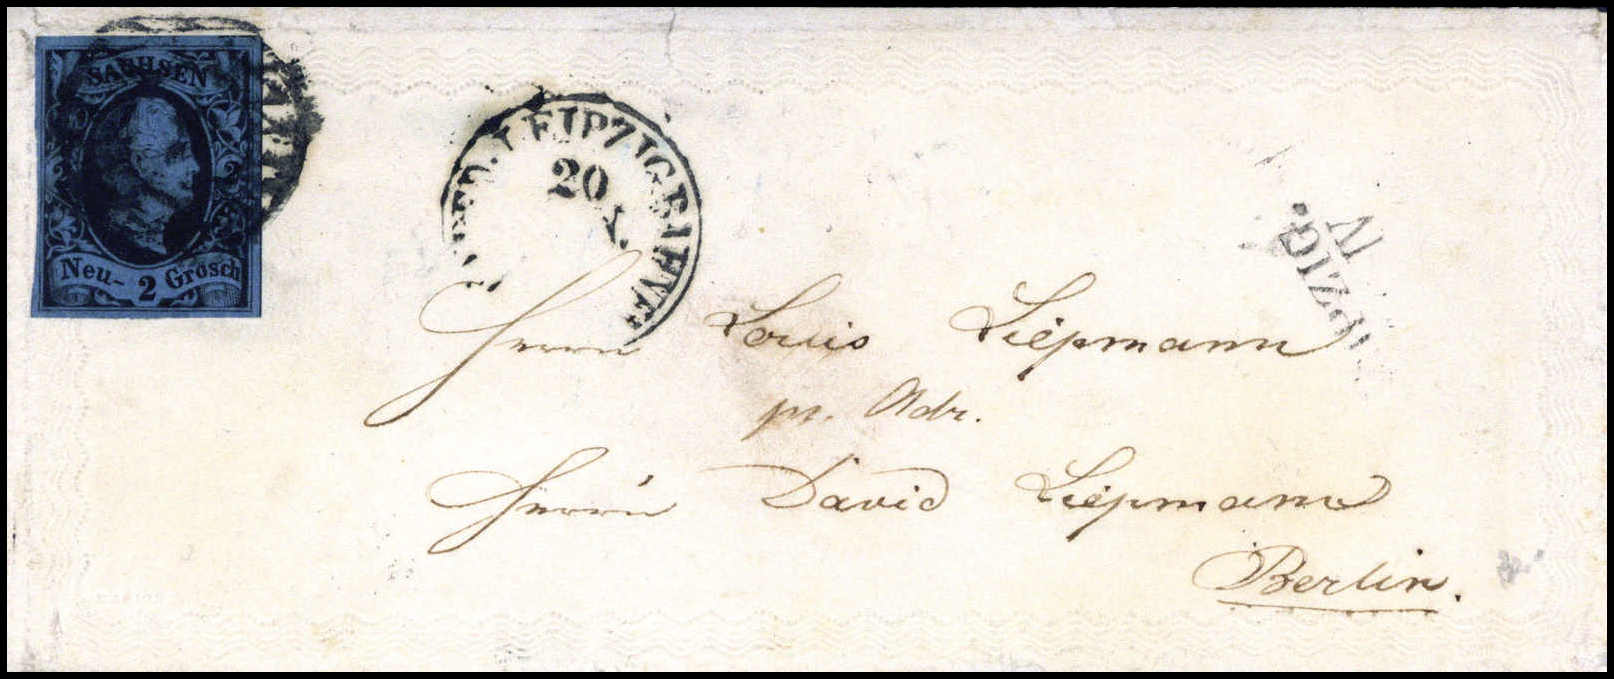 SACHSEN
2 2
Neu- 2 Grosch
LEIPZIG.BAHNH
20
X.
IV
PZIG.
Herrn Louis Liepmann
pr. Adr.
Herrn David Liepmann
Berlin.